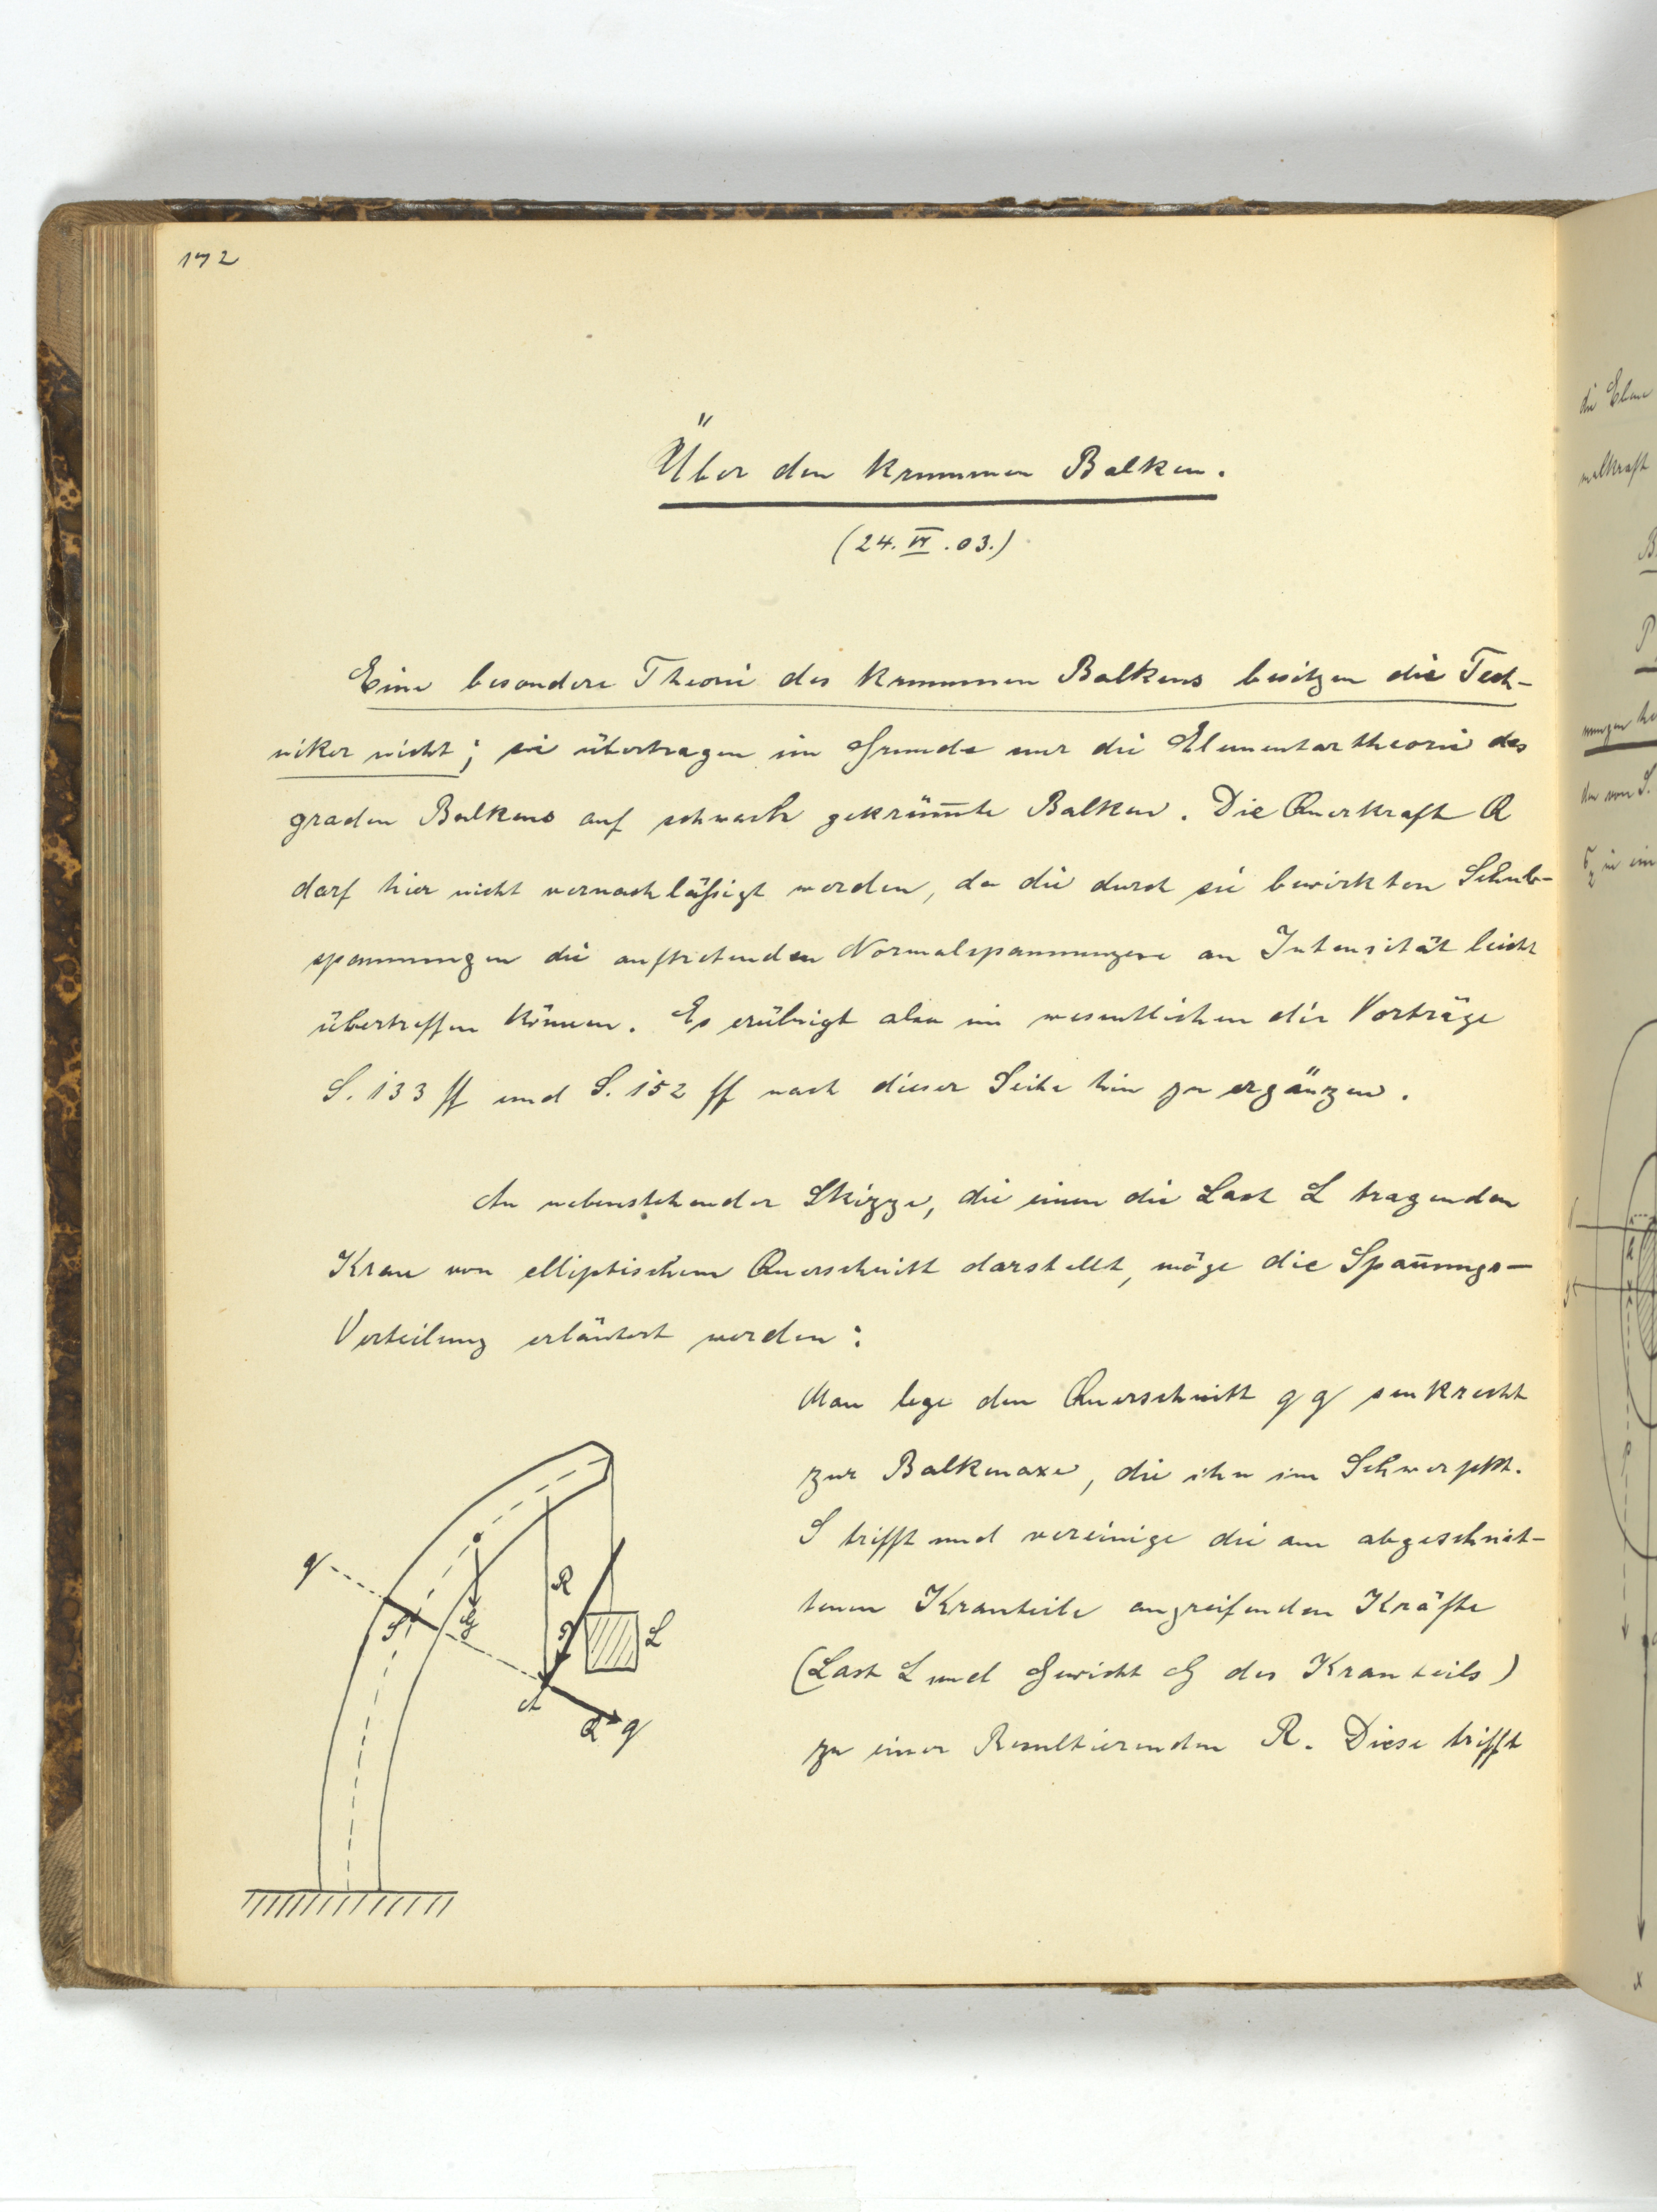 172
Über den krummen Balken.
(24. VI. 03.)
Eine besondere Theorie des krummen Balkens besitzen die Tech-
niker nicht; sie übertragen im Grunde nur die Elementartheorie des
graden Balkens auf schwach gekrüm̅te Balken. Die Querkraft Q
darf hier nicht vernachläßigt werden, da die durch sie bewirkten Schub-
spannungen die auftretenden Normalspannungen an Intensität leicht
übertreffen können. Es erübrigt also im wesentlichen die Vorträge
S. 133 ff und S. 152 ff nach dieser Seite hin zu ergänzen.
An nebenstehender Skizze, die einen die Last L tragenden
Kran von elliptischem Querschnitt darstellt, möge die Span̅ungs-
Verteilung erläutert werden:
Man lege den Querschnitt q q senkrecht
zur Balkenaxe, die ihn im Schwerpkt.
S trifft und vereinige die am abgeschnit-
tenen Kranteile angreifenden Kräfte
(Last L und Gewicht G des Kranteils)
zu einer Resultierenden R. Diese trifft
q
R
S
G
L
A
Q
q
die Ebene
malkraft
B
P
der von S.